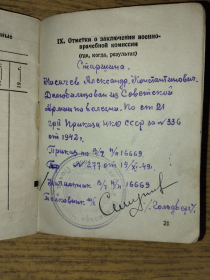 IX. Отметки о заключении военно-
врачебной комиссии
(где, когда, результат)
Старшина.
Косачев Александр Константинович.
Демобилизован из Советской
Армии по болезни. По ст 21
гр Приказа НКО СССР за №336
от 1942г.
Приказ по в/ч п/п 16669
№ 277 от 19/XI-49г.
Начштаба в/ч п/п 16669
Полковник м/с
/Гольдберг/.
21